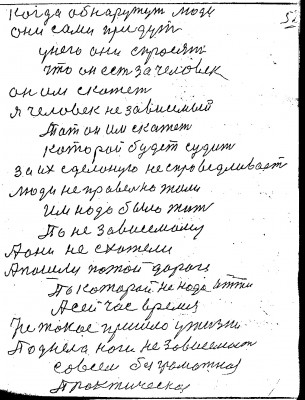 когда обнаружут люди
они сами придут
унего они спросят
что он ест за человек
он им скажет
я человек не зависимый
Тот он им скажет
которой будет судит
за их сделоную неспроведливаст
люди не провелно жили
Им надо было жит
По не зависемому
Аони не схотели
Апошли потой дороги
По которой не нада итти
Асей час время
Не токое пришло ужизни
Под нела ноги не зависемаст
совсем безграмотная
Практическоя